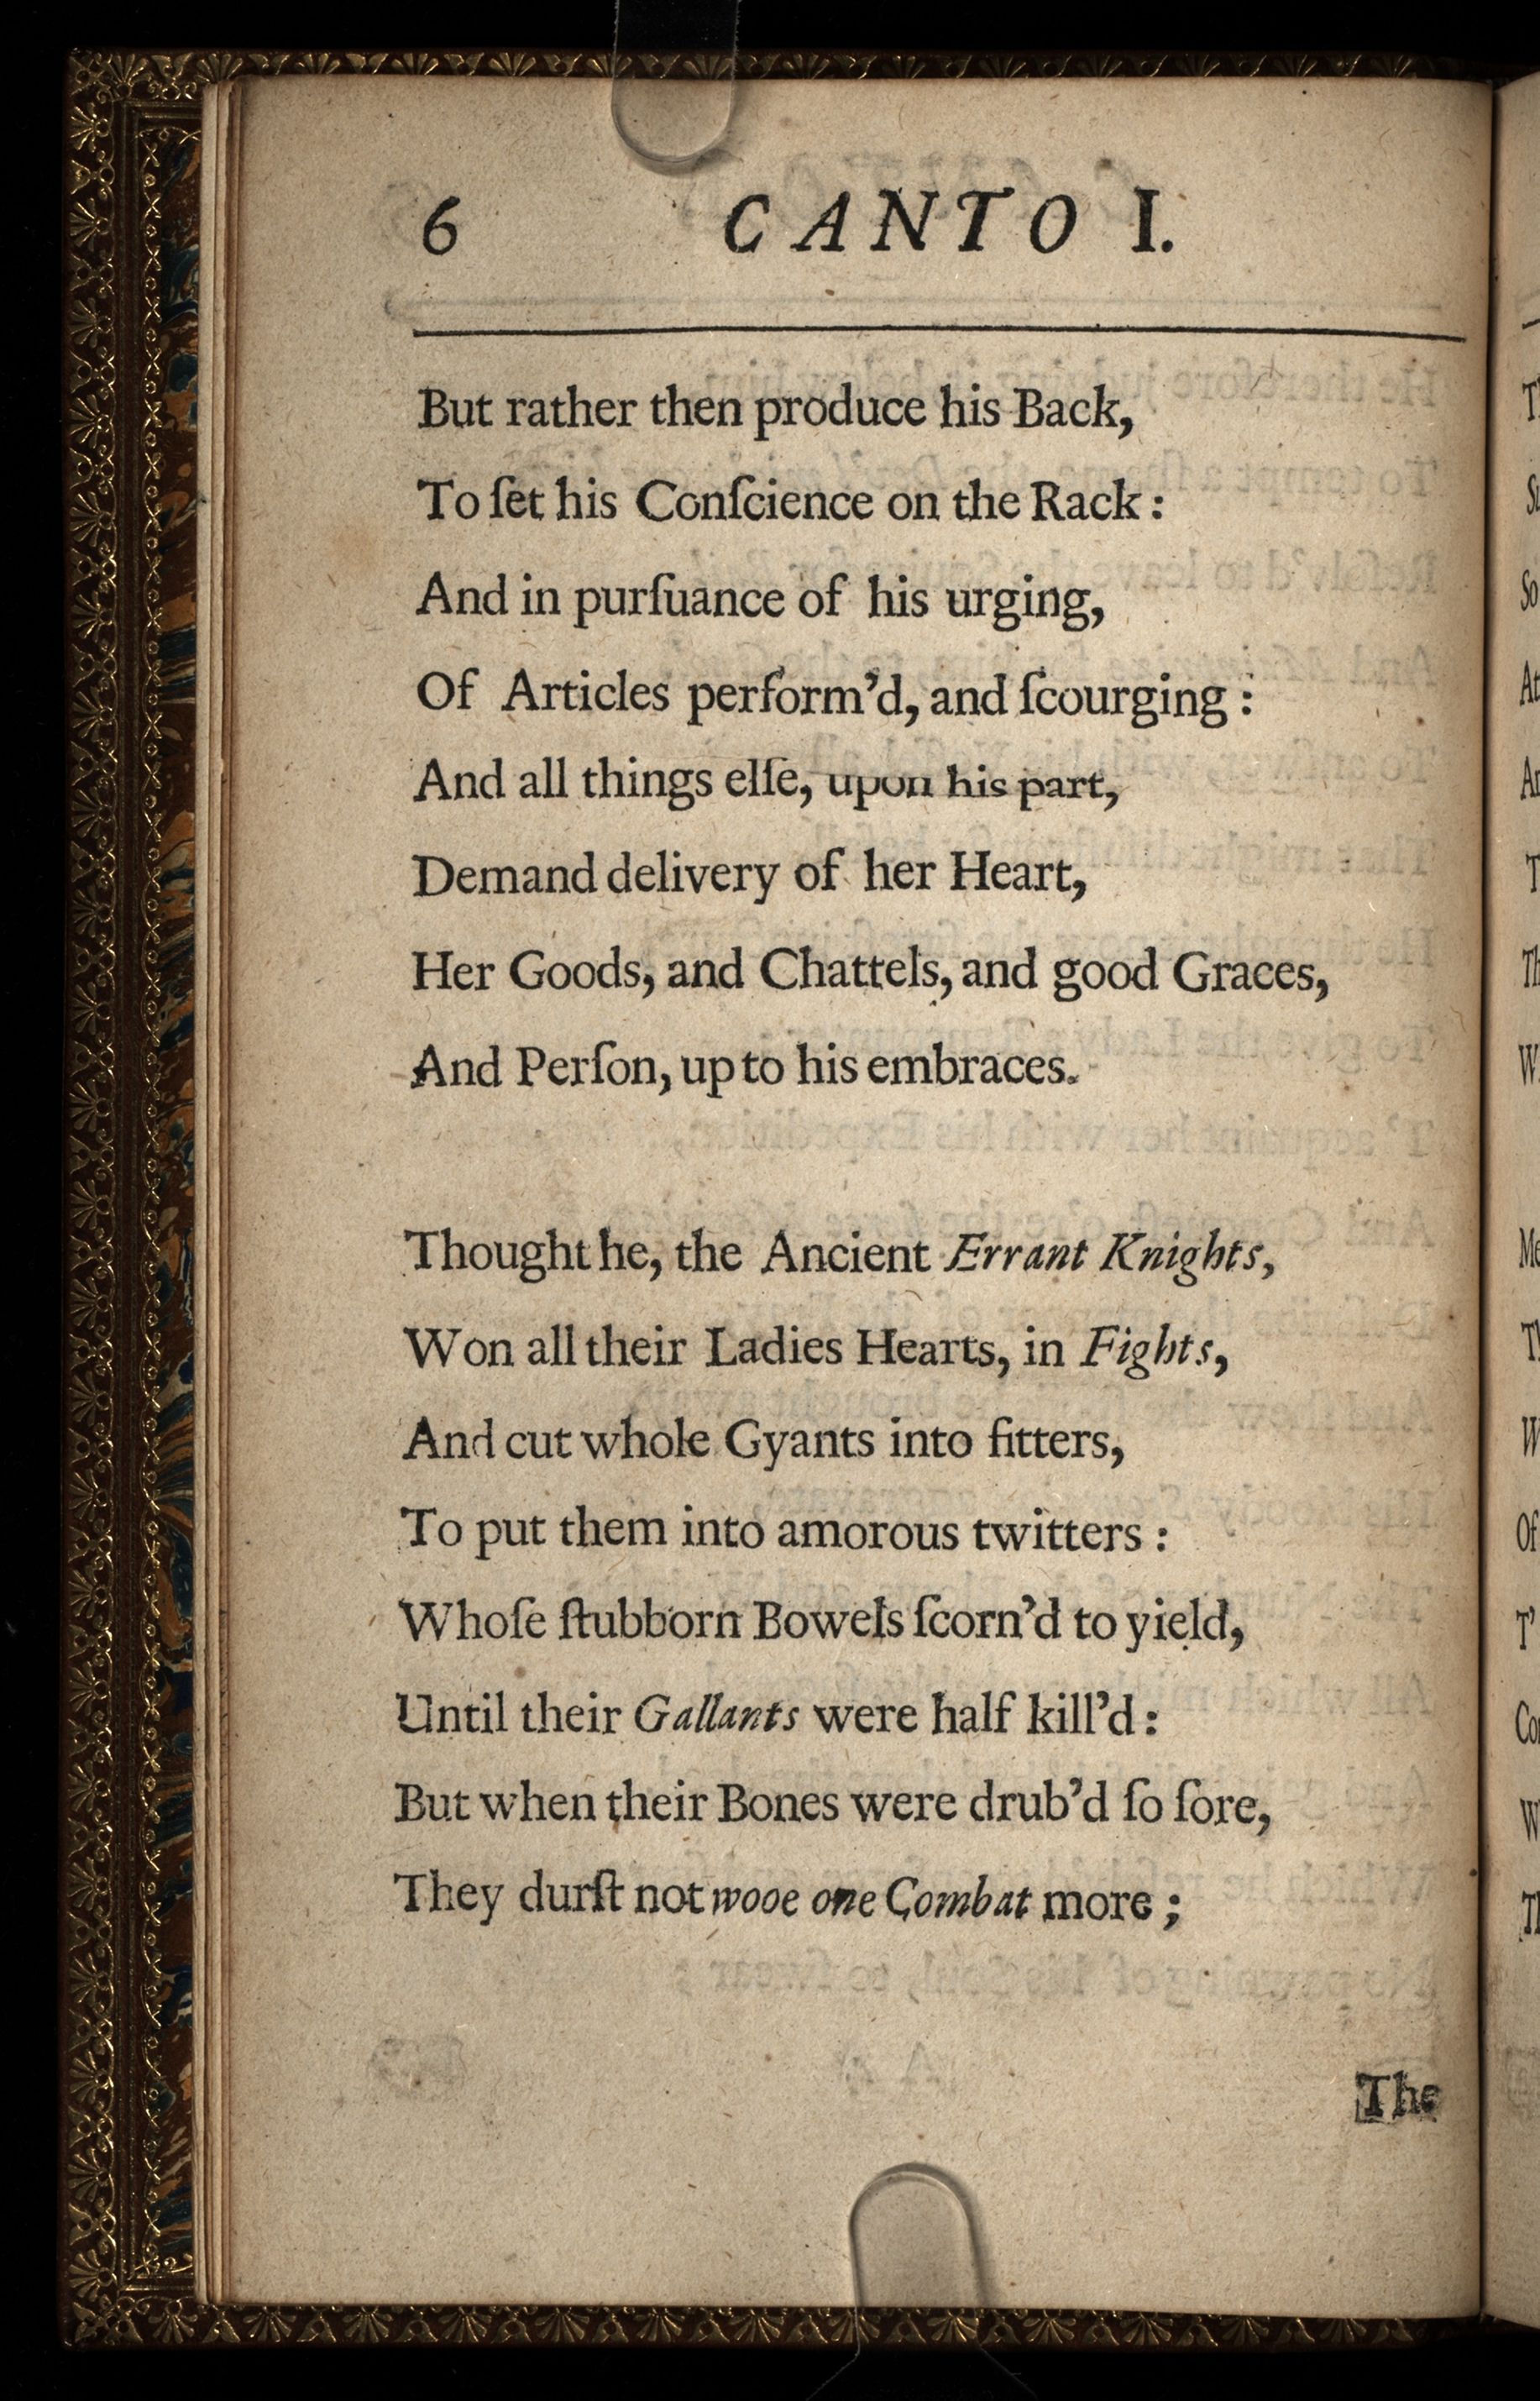 6 CANTO I.
But rather then produce his Back,
To ſet his Conſcience on the Rack:
And in purſuance of his urging,
Of Articles perform'd, and ſcourging:
And all things elſe, upon his part,
Demand delivery of her Heart,
Her Goods, and Chattels, and good Graces,
And Perſon, up to his embraces.
Thought he, the Ancient Errant Knights,
Won all their Ladies Hearts, in Fights,
And cut whole Gyants into fitters,
To put them into amorous twitters:
Whoſe ſtubborn Bowels ſcorn'd to yield,
Until their Gallants were half kill'd:
But when their Bones were drub'd ſo ſore,
They durſt not wooe one Combat more;
The